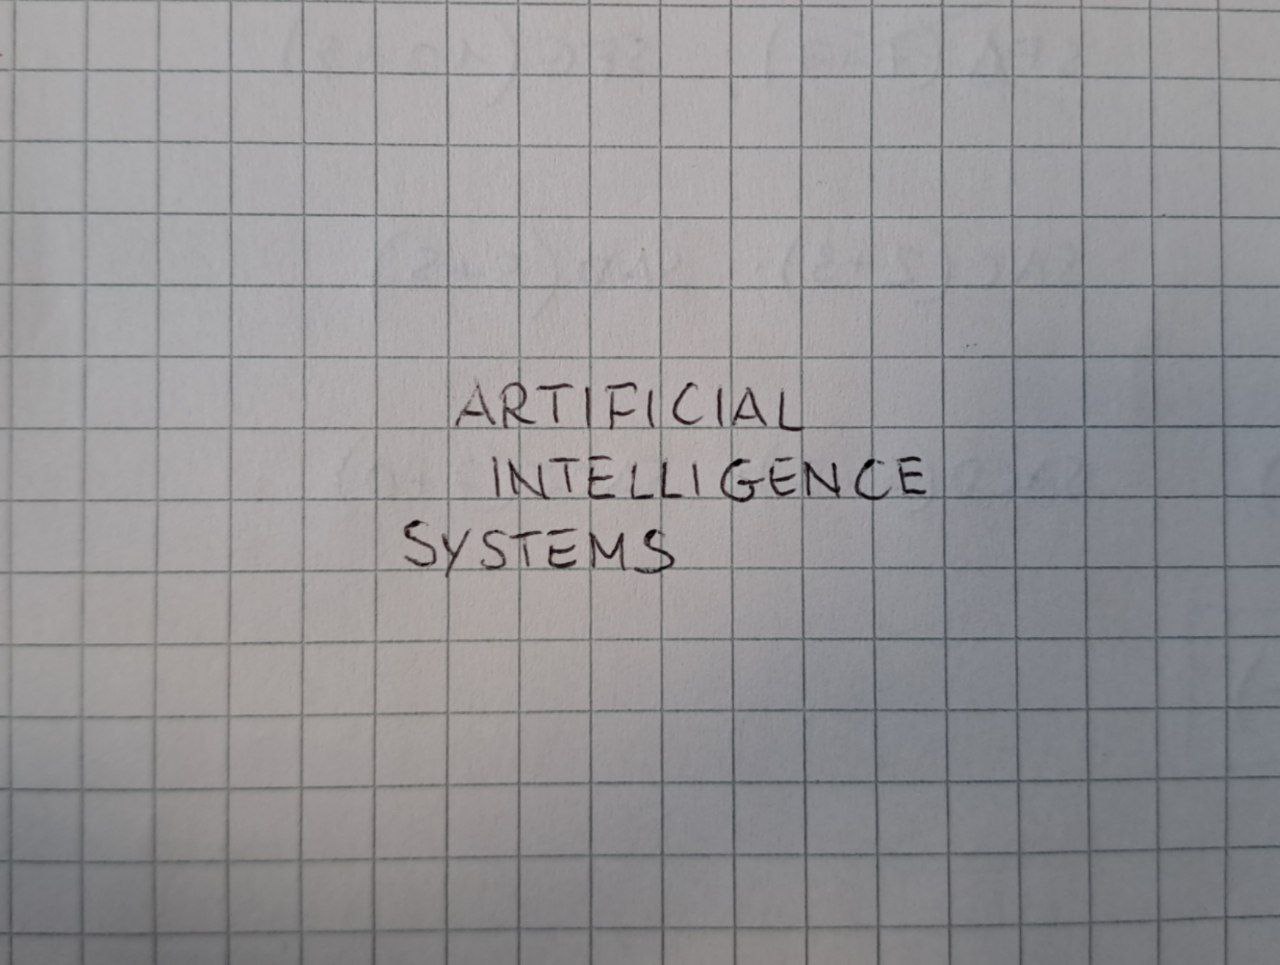 ARTIFICIAL
INTELLIGENCE
SYSTEMS